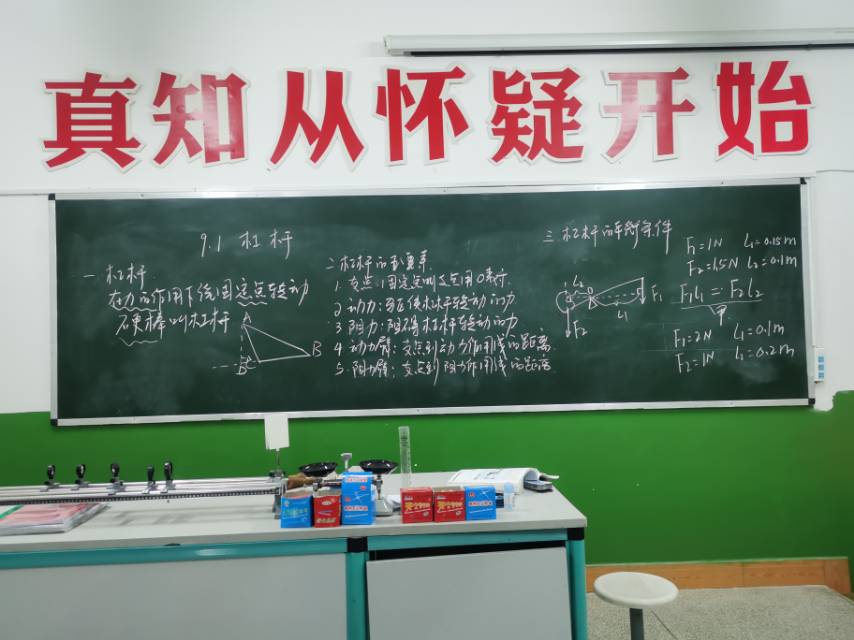 真知从怀疑开始
9.1 杠杆
一 杠杆
在力的作用下绕固定点转动
硬棒叫杠杆
A
B
C
二 杠杆的五要素
1. 支点:固定点叫支点用O表示.
2 动力:驱使杠杆转动的力
3 阻力:阻碍杠杆转动的力
4 动力臂:支点到动力作用线的距离
5. 阻力臂:支点到阻力作用线的距离
三 杠杆的平衡条件
L₂
O
F₁
L₁
F₂
F₁=1N L₁=0.15m
F₂=1.5N L₂=0.1m
F₁L₁=F₂L₂
F₁=2N L₁=0.1m
F₂=1N L₂=0.2m